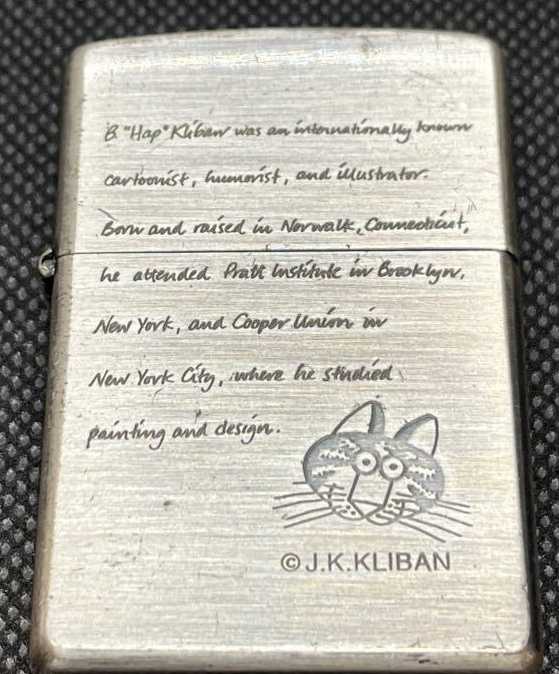 B "Hap" Kliban was an internationally known
cartoonist, humorist, and illustrator.
Born and raised in Norwalk, Connecticut,
he attended Pratt Institute in Brooklyn,
New York, and Cooper Union in
New York City, where he studied
painting and design.
© J.K.KLIBAN